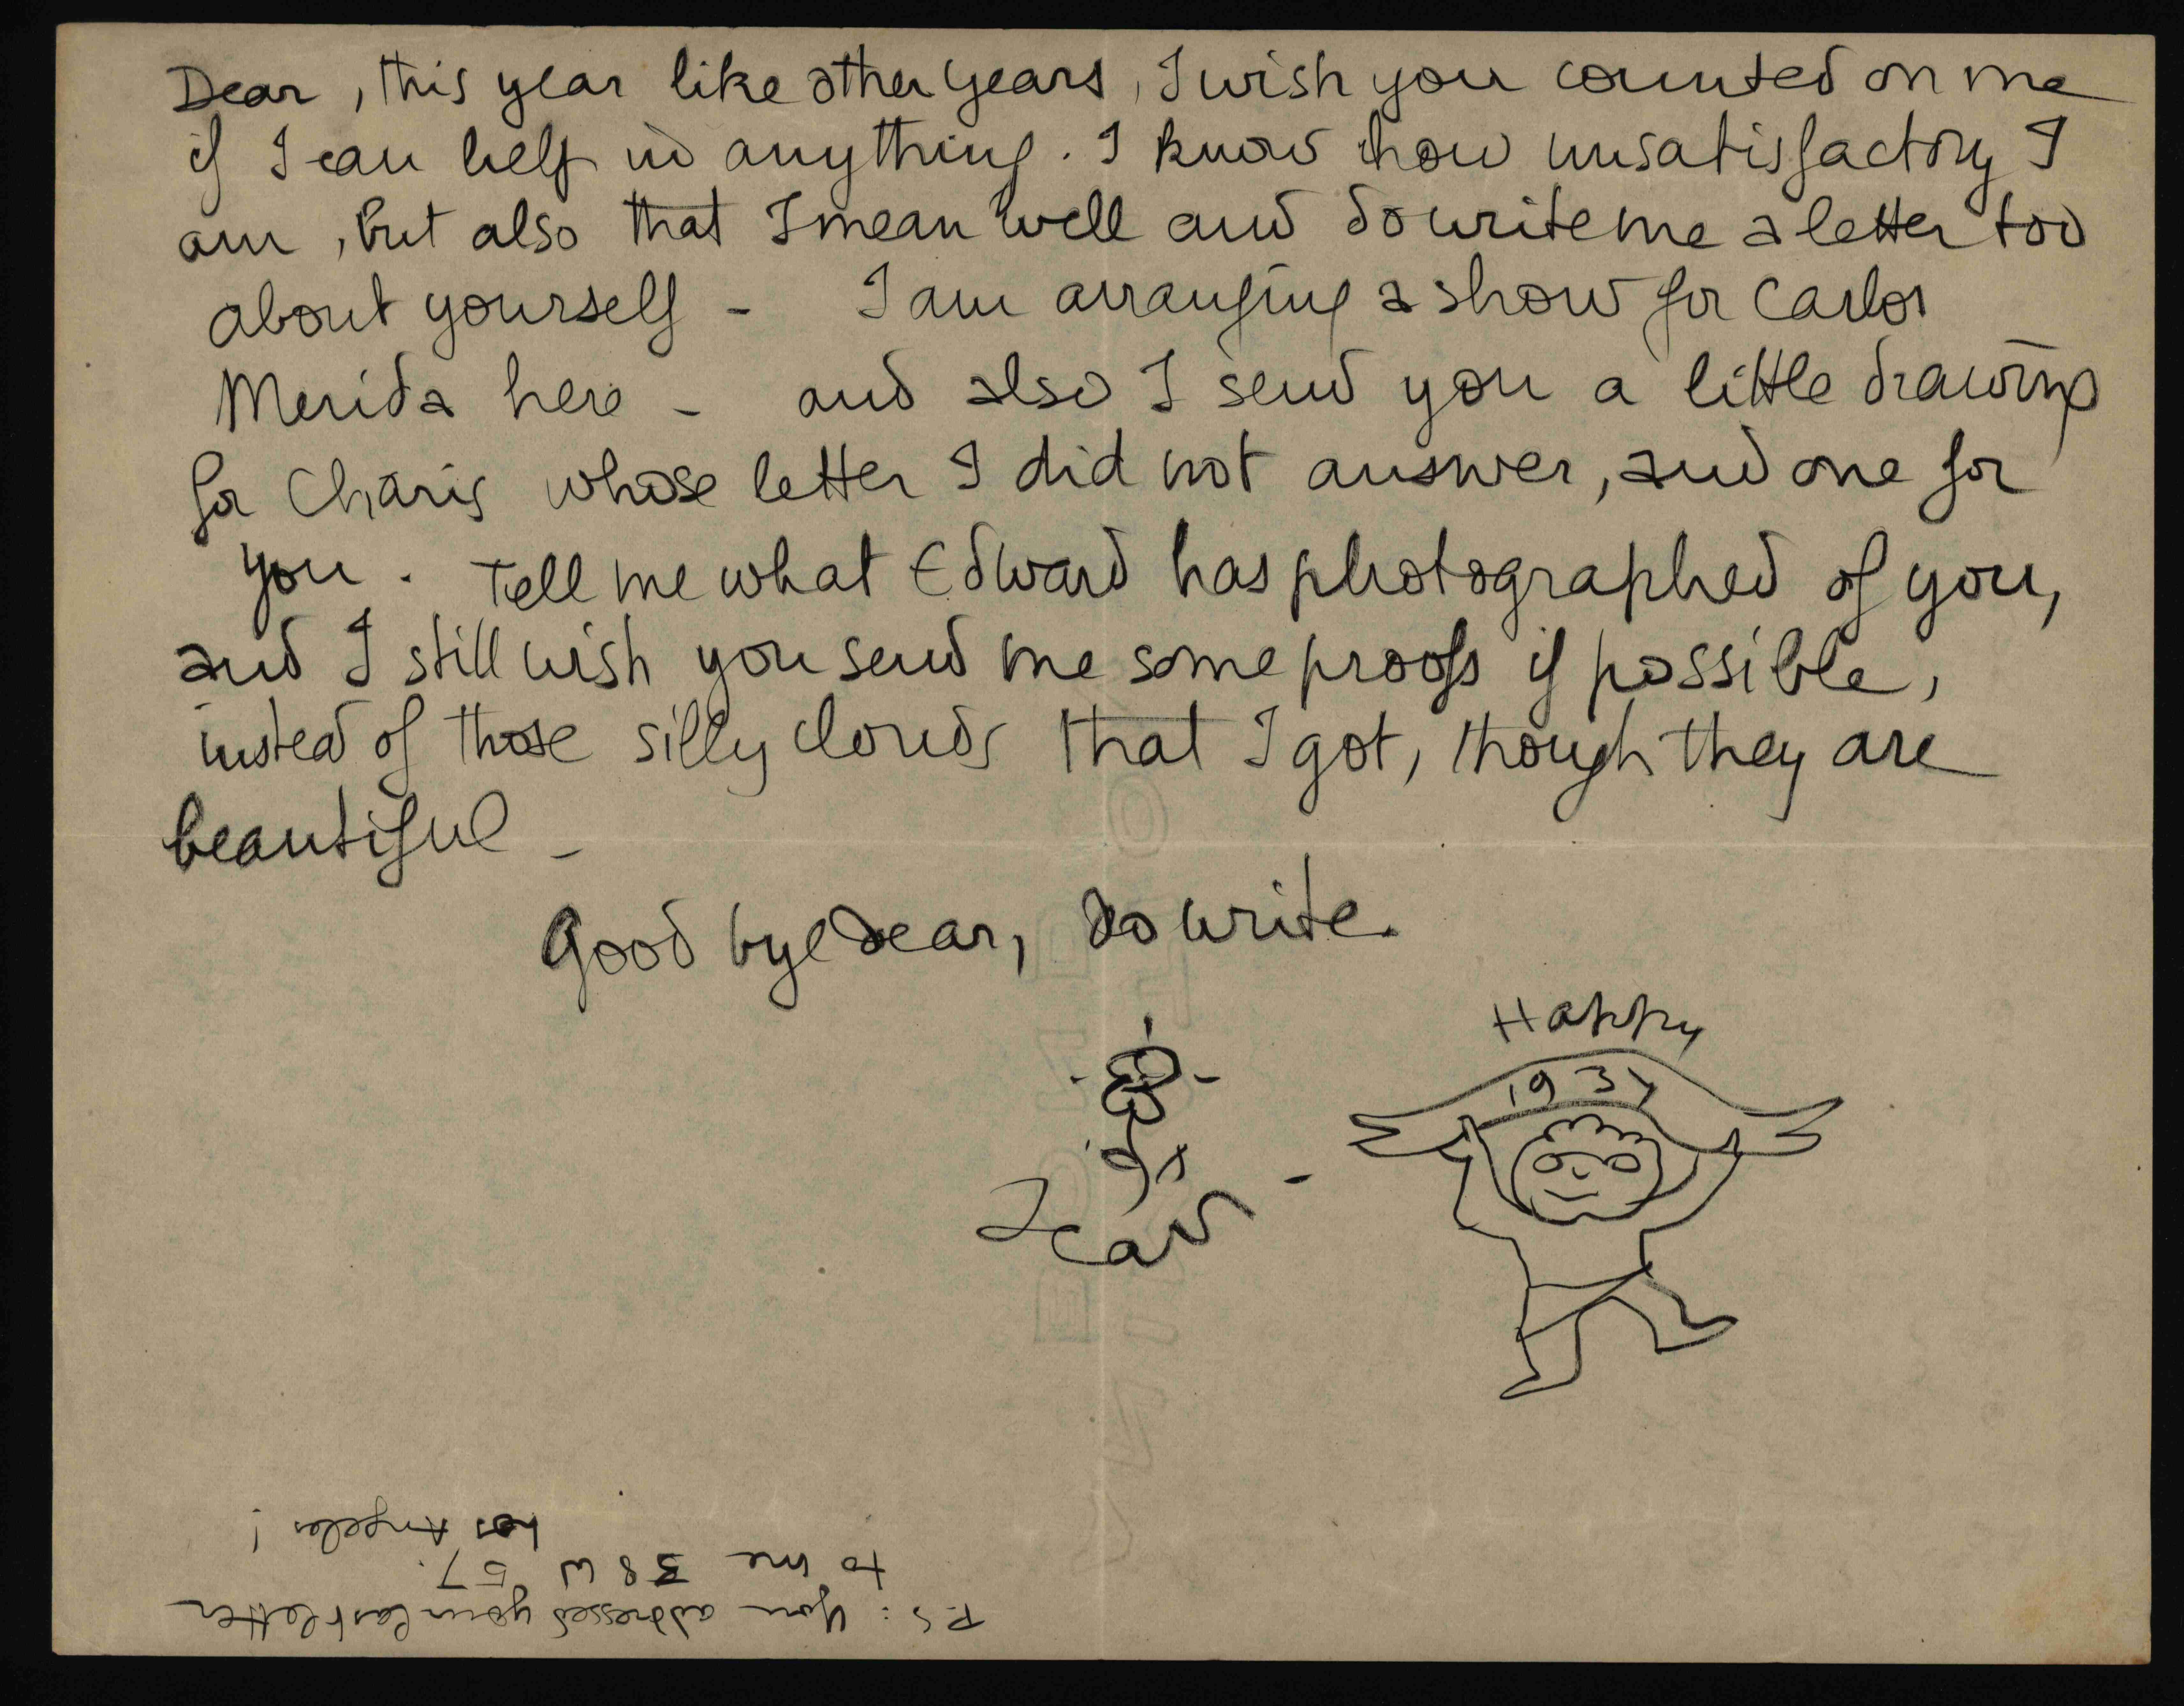 Dear, this year like other years, I wish you counted on me
if I can help in anything. I know how unsatisfactory I
am, but also that I mean well and do write me a letter too
about yourself - I am arranging a show for Carlos
Merida here - and also I send you a little drawing
for Charis whose letter I did not answer, and one for
you. Tell me what Edward has photographed of you,
and I still wish you send me some proofs if possible,
instead of those silly clouds that I got, though they are
beautiful -
Good bye dear, do write.
Jean -
Happy
1937
P.S: You addressed your last letter
to me 38 W 57.
Los Angeles!